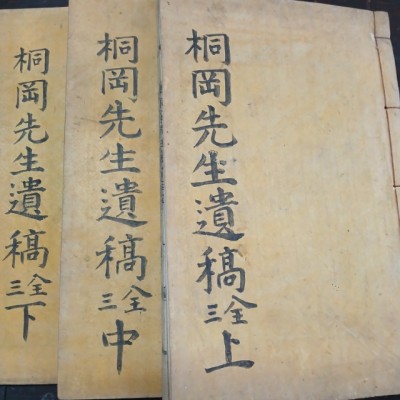 桐岡先生遺稿 全三 上
桐岡先生遺稿 全三 中
桐岡先生遺稿 全三 下